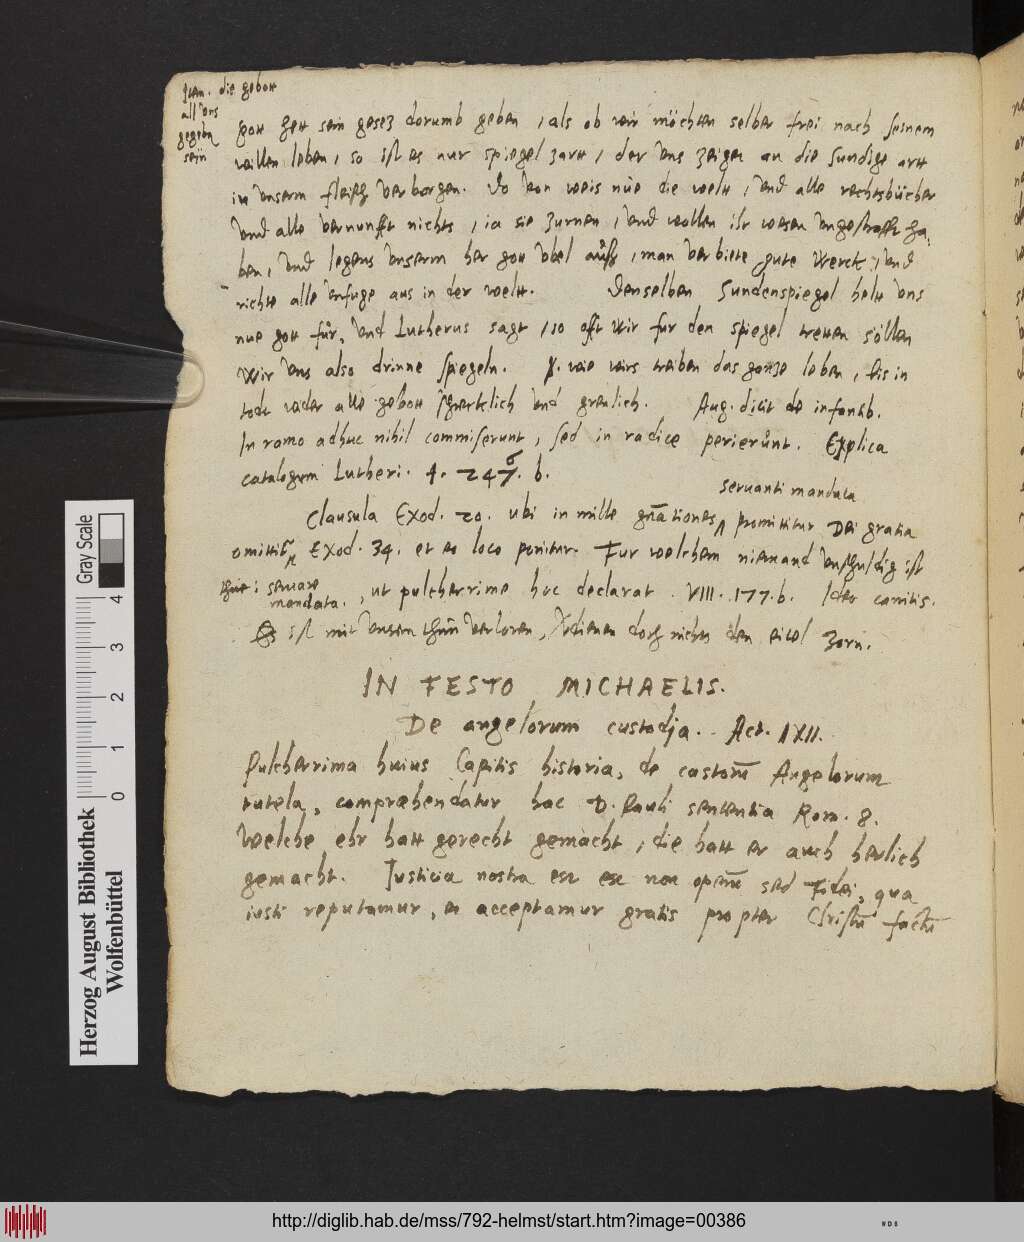 Item. die gebott
all uns
gegebn
sein
gott hett sein gesez dorumb geben, als ob wir möchten selber frei nach seinem
willen leben, so ist es nur spiegel zart, der uns zeiget an die sundige artt
in unserm fleisch verborgen. Do von weis nůe die welt, und alle rechtsbücher
und alle vernunfft nichts, ia sie zurnen, und wollen ihr wesen ungestrafft ha,
ben, und legens unserm her gott ubel auß, man verbiete gute werck, und
richte alle unfuge aus in der welt. Denselben Sundenspiegel helt uns
nue gott für, und Lutherus sagt, so offt wir fur den spiegel tretten söllen
Wir uns also drinne spiegeln. wie wirs treiben das gantze leben, bis in
todt wider alle gebott schrecklich und greulich. Aug. dicit de infantib.
In ramo adhuc nihil commiserunt, sed in radice perierunt. Explica
catalogum Lutheri. 4. 247. b.
servanti mandata
Clausula Exod. 20. ubi in mille gnãtiones promittitur Dei gratia
omittit̃ Exod. 34. et eo loco ponitur. Fur welchem niemand unschuldig ist
servare
mandata., ut pulcherrime hoc declarat. VIII. 177. b. Ideo canitis.
Es ist mit unserm thun verloren, Verdienen doch nichts den eitel zorn.
IN FESTO MICHAELIS.
De angelorum custodja. Act. 1XII.
Pulcherrima huius Capitis historia, de castorũ Angelorum
tutela, compræhendatur hac D. Pauli sententia Rom. 8.
Welche ehr hatt gerecht gemacht, die hatt er auch herlich
gemacht. Justicia nostra est est non operũ sed Fidei, qua
iusti reputamur, et acceptamur gratis propter Christũ factũ
Gray Scale
0 1 2 3 4
Herzog August Bibliothek
Wolfenbüttel
http://diglib.hab.de/mss/792-helmst/start.htm?image=00386